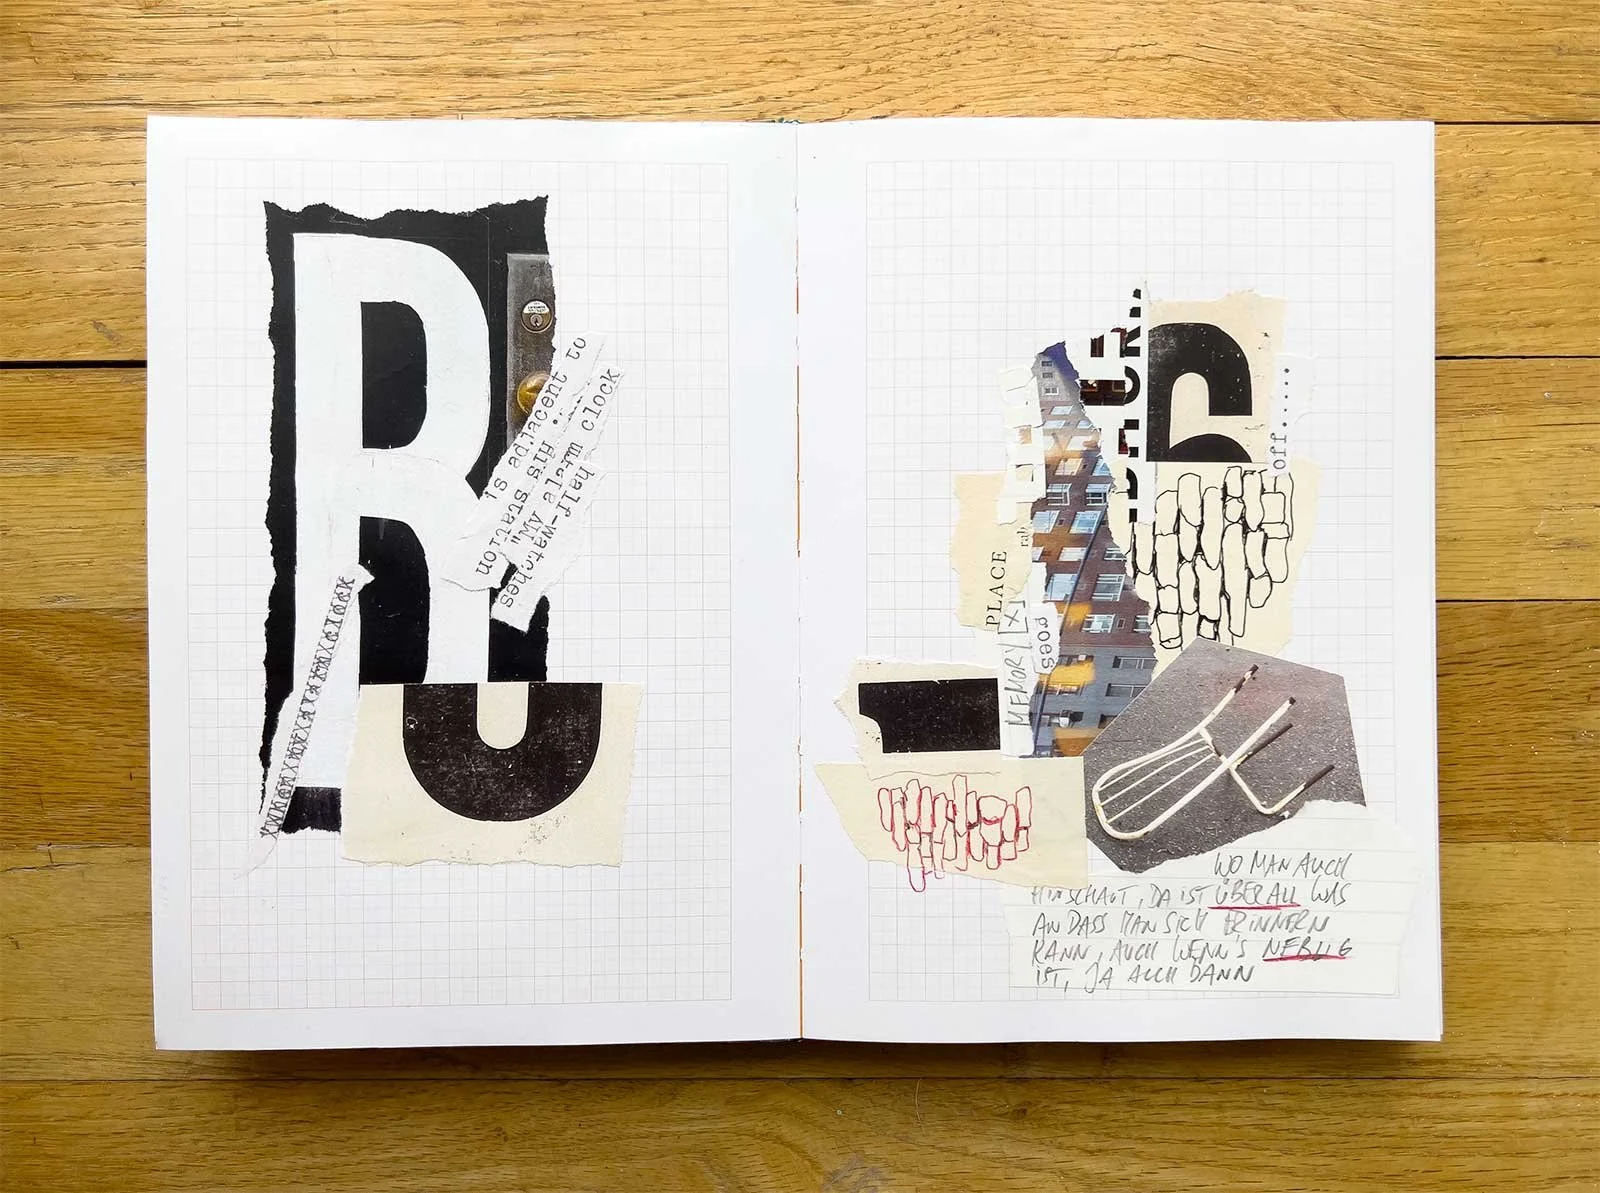 R
is adjacent to
his station
"My alarm clock
half-watches
PLACE
MEMORY [X]
goes
off......
WO MAN AUCH
HINSCHAUT, DA IST ÜBERALL WAS
AN DASS MAN SICH ERINNERN
KANN, AUCH WENN'S NEBLIG
IST, JA AUCH DANN